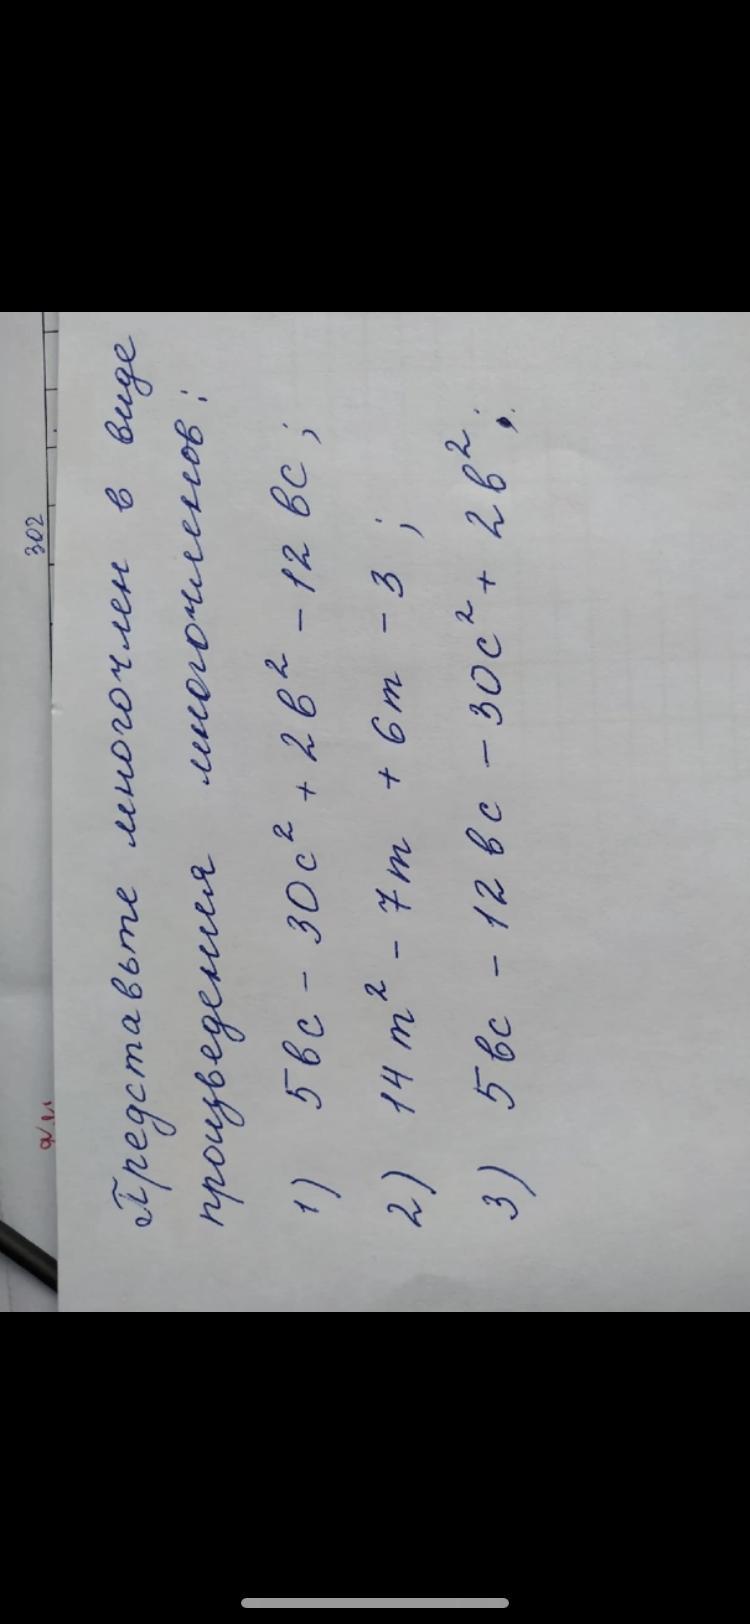 302
Представьте многочлен в виде
произведения многочленов:
1) 5bc - 30c² + 2b² - 12bc;
2) 14m² - 7m + 6m - 3;
3) 5bc - 12bc - 30c² + 2b²;